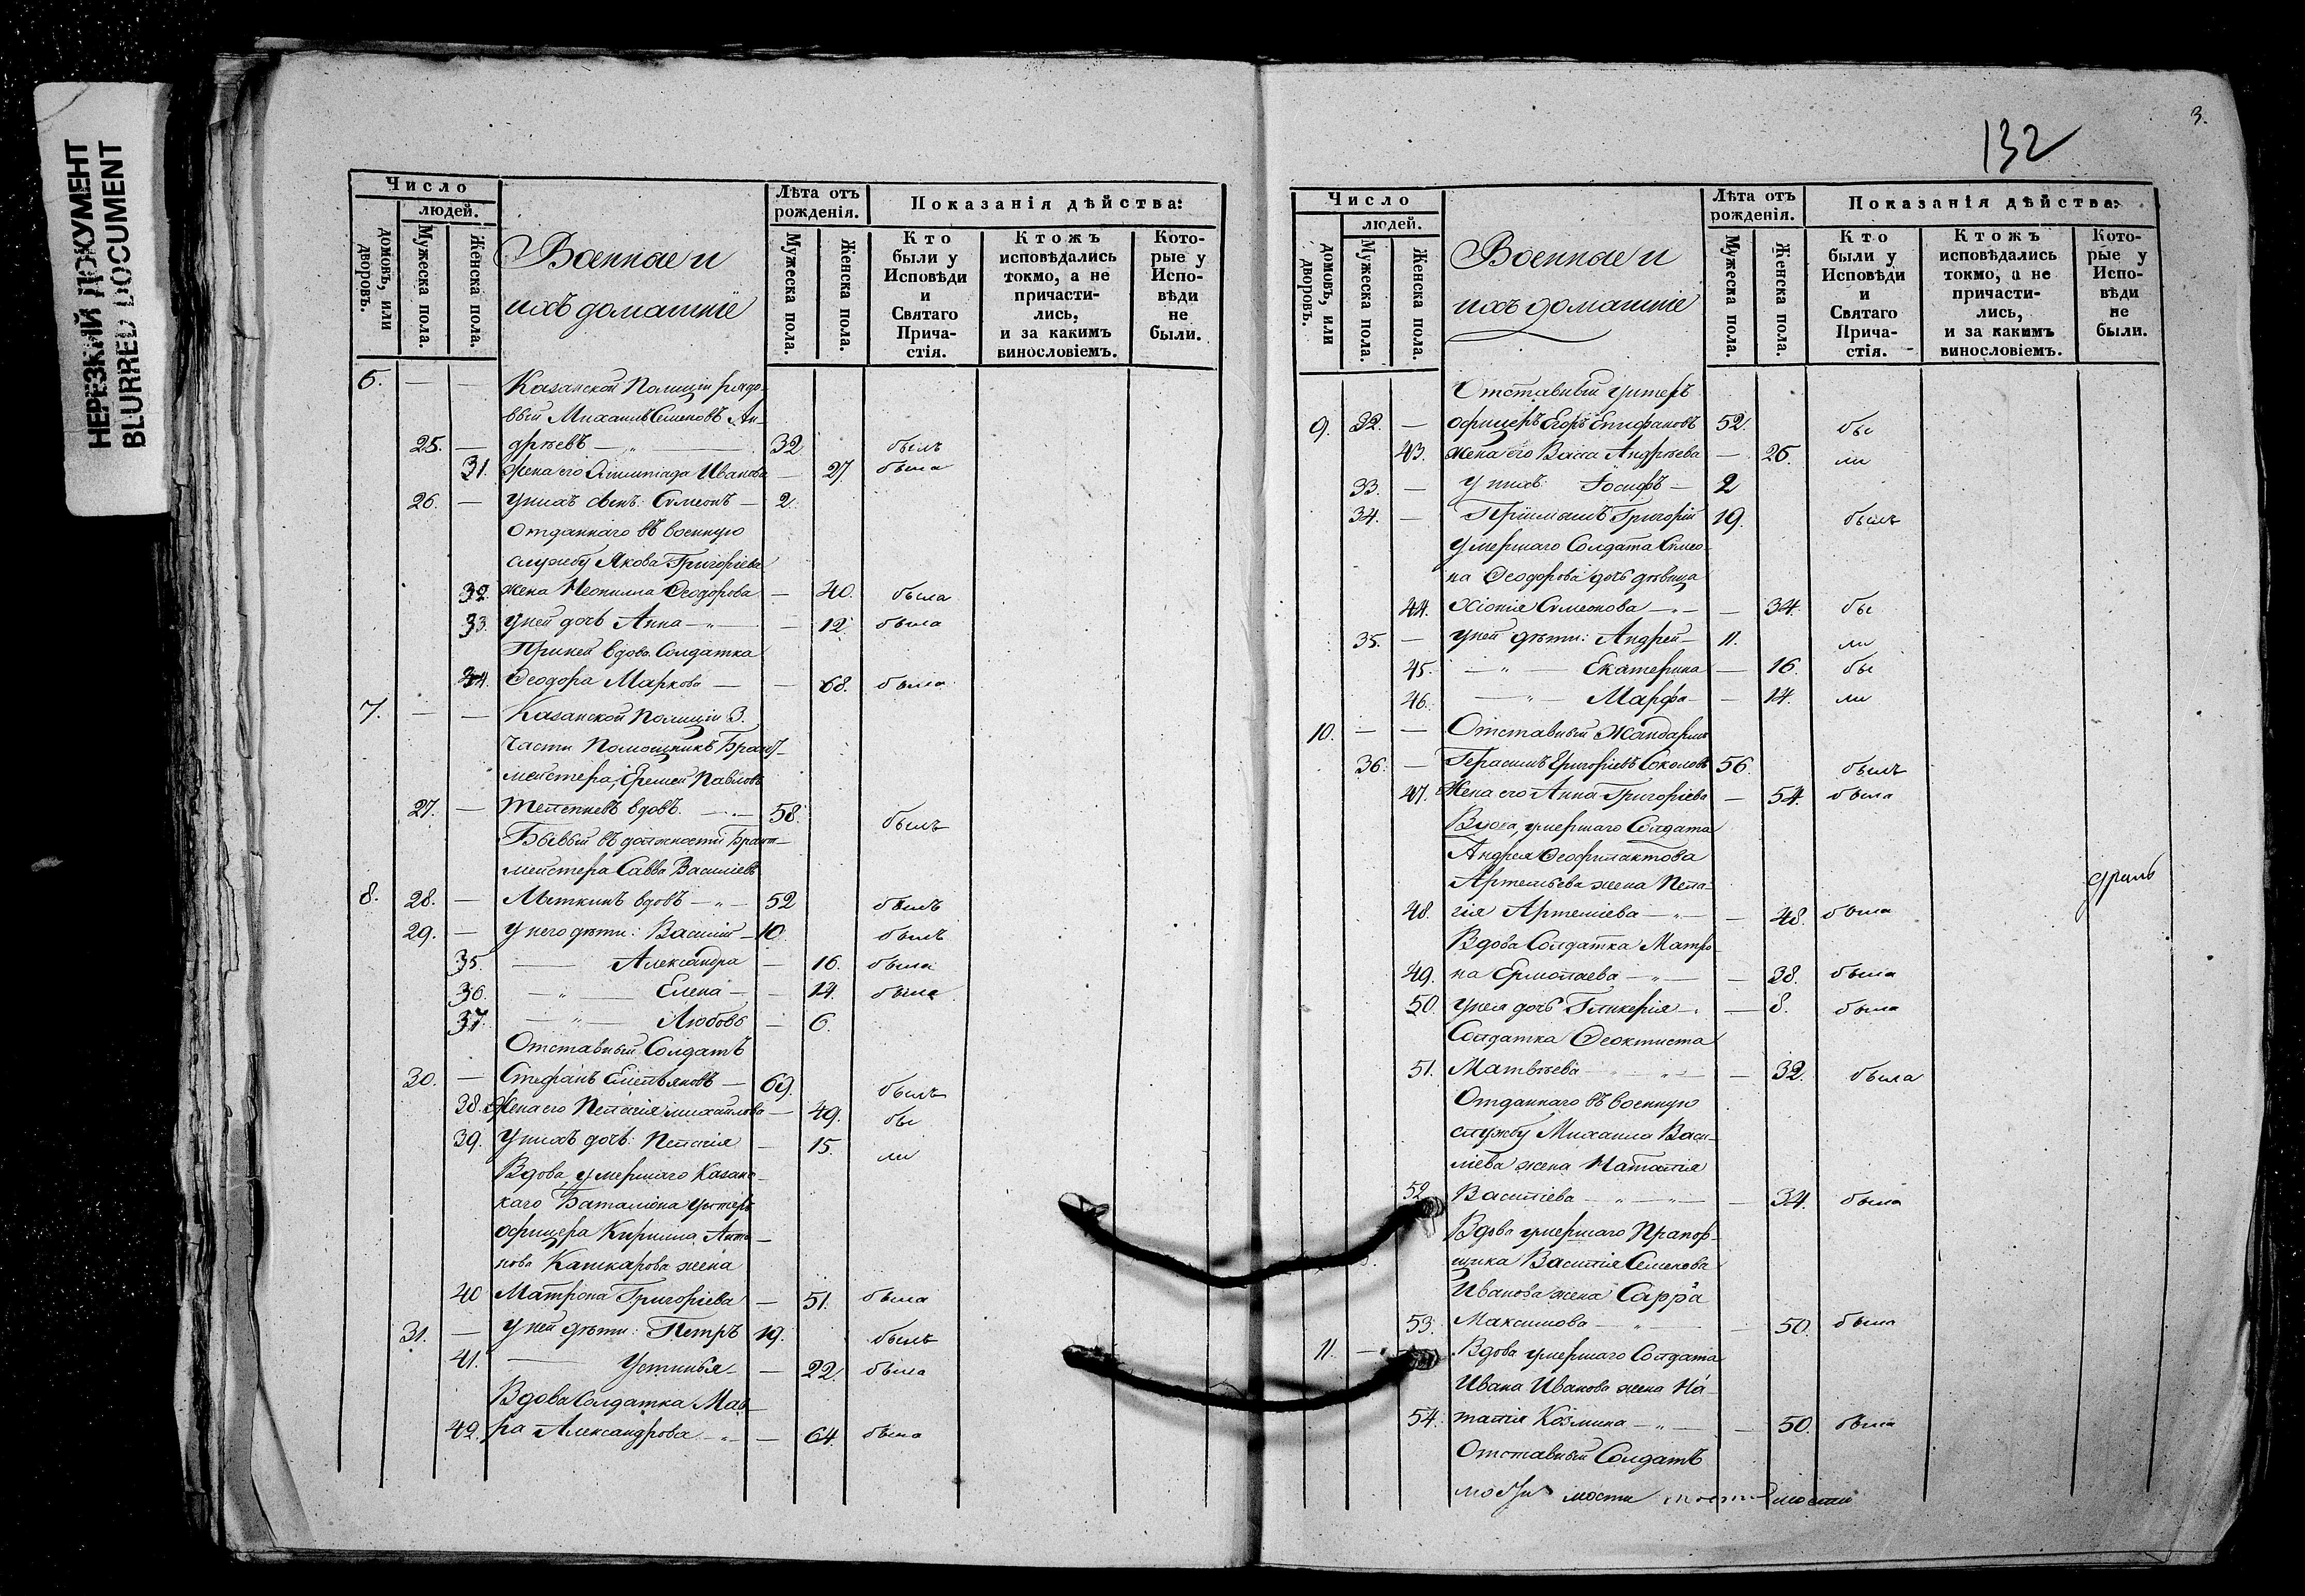 НЕРЕЗКИЙ ДОКУМЕНТ
BLURRED DOCUMENT
Число
людей.
домовъ, или дворовъ.
Мужеска пола.
Женска пола.
Военные и
ихъ домашніе
Лѣта отъ рожденія.
Мужеска пола.
Женска пола.
Показанія дѣйства:
Кто были у Исповѣди и Святаго Прича-стія.
Ктожъ исповѣдались токмо, а не причасти-лись, и за какимъ винословіемъ.
Кото-рые у Испо-вѣди не были.
6. — — Казанской Полиціи рядо-
вый Михаилъ Семеновъ Ан-
25. — дреевъ — 32 былъ
31. Жена его Олимпіада Иванова — 27. была
26. — у нихъ сынъ Симеонъ — 2.
Отданнаго въ военную
службу Якова Григоріева
32. жена Неонила Ѳеодорова — 40. была
33. у ней дочь Анна — 12. была
При ней вдова Солдатка
34. Ѳеодора Маркова — 68. была
7. — — Казанской Полиціи 3.
части Помощникъ Брант-
мейстера, Еремей Павловъ
27. — вдовъ — 58. былъ
Бывый въ должности Брант-
мейстера Савва Василіевъ
8. 28. — Мыткинъ вдовъ — 52 былъ
29. — у него дѣти: Василій — 10. былъ
35. — Александра — 16. была
36. — Елена — 14. была
37. — Любовь — 6.
Отставный Солдатъ
30. — Стефанъ Емельяновъ — 69. былъ
38. Жена его Пелагія Михайлова — 49. бы
39. У нихъ дочь: Пелагія — 15. ли
Вдова, умершаго Казанс-
каго Баталіона унтеръ
офицера Кирилла Анто-
нова Кашкарова жена
40 Матрона Григоріева — 51. была
31. — У ней дѣти: Петръ 19. былъ
41. — Устинья — 22. была
Вдова Солдатка Мав-
42. ра Александрова — 64. была
132
3.
Число
людей.
домовъ, или дворовъ.
Мужеска пола.
Женска пола.
Военные и
ихъ домашніе
Лѣта отъ рожденія.
Мужеска пола.
Женска пола.
Показанія дѣйства:
Кто были у Исповѣди и Святаго Прича-стія.
Ктожъ исповѣдались токмо, а не причасти-лись, и за какимъ винословіемъ.
Кото-рые у Испо-вѣди не были.
Отставный Унтеръ
9. 32. — офицеръ Егоръ Епифановъ 52. бы
43. жена его Васса Андреева — 26. ли
33. — У нихъ: Іосифъ — 2
34. — Пріимышъ Григорій 19. былъ
Умершаго Солдата Симео-
на Ѳеодорова дочь дѣвица
44. Хіонія Симеонова — 34. бы
35. — у ней дѣти: Андрей — 11. ли
45. — Екатерина — 16. бы
46. — Марфа — 14. ли
10. — — Отставный Жандармъ
36. — Герасимъ Григоріевъ Соколовъ 56. былъ
47. Жена его Анна Григоріева — 54. была
Вдова, умершаго Солдата
Андрея Ѳеофилактова
Артемьева жена Пела-
48. гія Артеміева — 48. была
Вдова Солдатка Матро-
49. на Ермолаева — 38. была
50. у нея дочь Гликерія — 8. была
Солдатка Ѳеоктиста
51. Матвѣева — 32. была
Отданнаго въ военную
службу Михаила Васи-
ліева жена Наталія
52. Василіева — 34. была
Вдова умершаго Прапор-
щика Василія Семенова
Иванова жена Сарра
53. Максимова — 50. была
11. — Вдова умершаго Солдата
Ивана Иванова жена На-
54. талія Козмина — 50. была
Отставный Солдатъ
мости